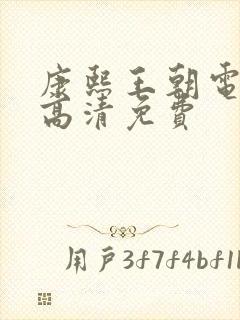 康熙王朝電
高清免費
用戶3f7f4bf1